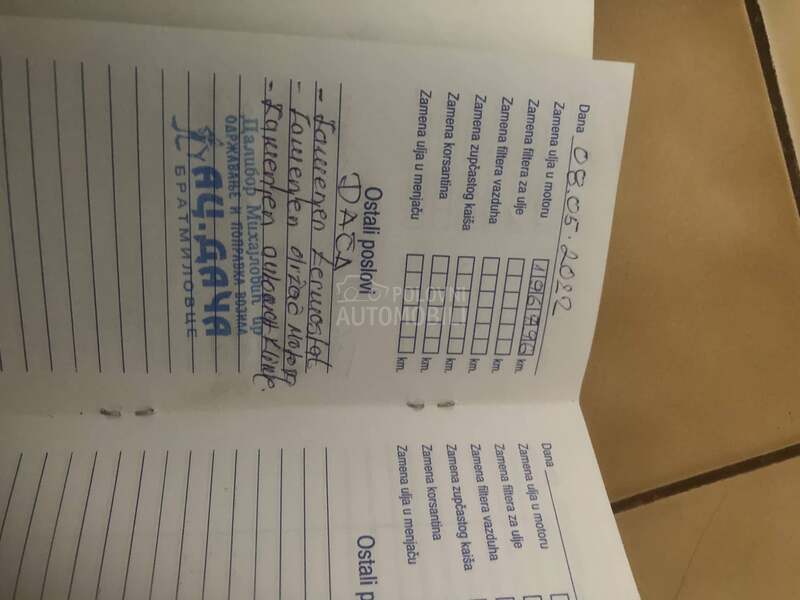 Dana 08.05.2022
Zamena ulja u motoru 196996 km.
Zamena filtera za ulje km.
Zamena filtera vazduha km.
Zamena zupčastog kaiša km.
Zamena korsantina km.
Zamena ulja u menjaču km.
Ostali poslovi
DAČA
- Zamenjen termostat
- Zamenjen držač motora
- Zamenjen klime.
Далибор Михајловић пр
ОДРЖАВАЊЕ И ПОПРАВКА ВОЗИЛА
АЦ.ДАЧА
БРАТМИЛОВЦЕ
POLOVNI
AUTOMOBILI
Dana
Zamena ulja u motoru
Zamena filtera za ulje
Zamena filtera vazduha
Zamena zupčastog kaiša
Zamena korsantina
Zamena ulja u menjaču
Ostali p